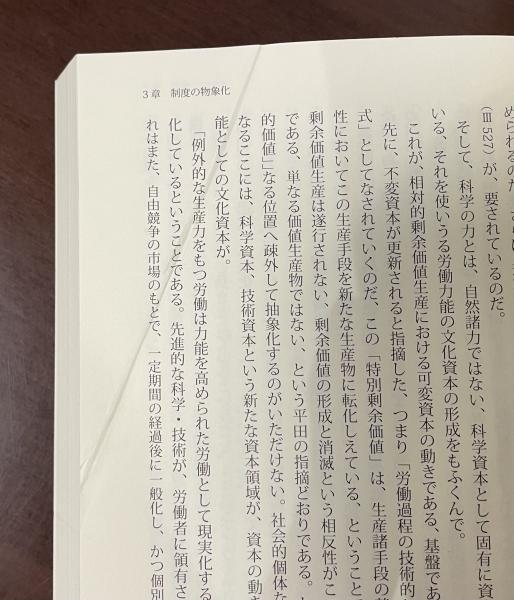 3章　制度の物象化
められるのだ
（Ⅲ 527）が、要されているのだ。
そして、科学の力とは、自然諸力ではない、科学資本として固有に資
いる、それを使いうる労働力能の文化資本の形成をもふくんで。
これが、相対的剰余価値生産における可変資本の動きである、基盤であ
先に、不変資本が更新されると指摘した、つまり「労働過程の技術的
式」としてなされていくのだ、この「特別剰余価値」は、生産諸手段の
性においてこの生産手段を新たな生産物に転化しえている、ということ
剰余価値生産は遂行されない、剰余価値の形成と消滅という相反性がこ
である、単なる価値生産物ではない、という平田の指摘どおりである。
的価値」なる位置へ疎外して抽象化するのがいただけない。社会的個体な
なるここには、科学資本、技術資本という新たな資本領域が、資本の動き
能としての文化資本が。
「例外的な生産力をもつ労働は力能を高められた労働として現実化する
化しているということである。先進的な科学・技術が、労働者に領有さ
れはまた、自由競争の市場のもとで、一定期間の経過後に一般化し、かつ個別